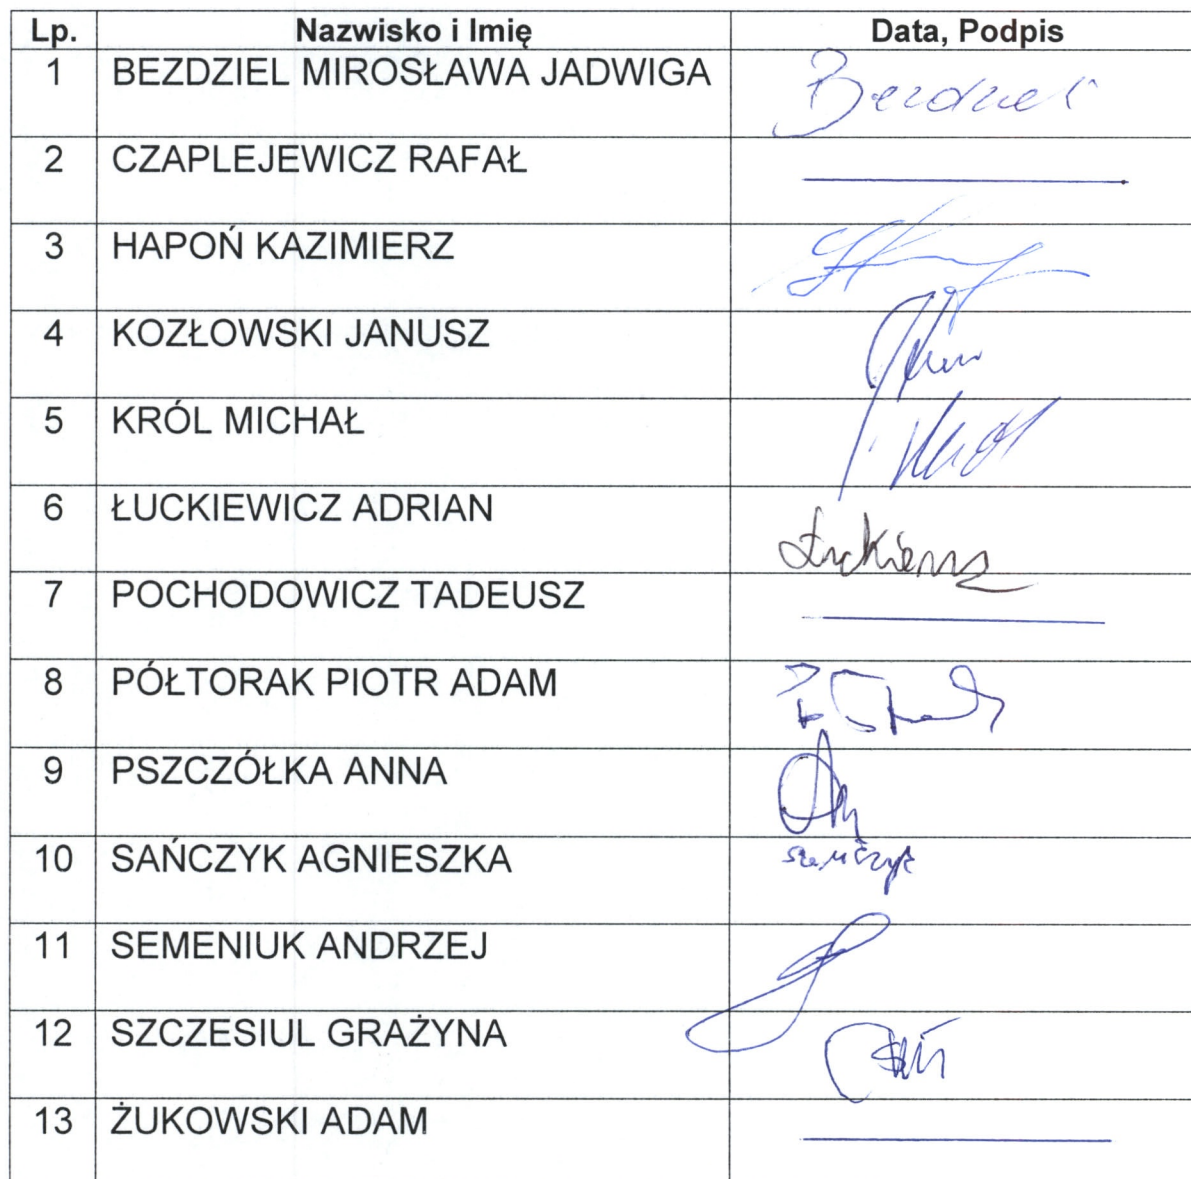 Lp. Nazwisko i Imię Data, Podpis
1 BEZDZIEL MIROSŁAWA JADWIGA Bezdziel
2 CZAPLEJEWICZ RAFAŁ
3 HAPOŃ KAZIMIERZ
4 KOZŁOWSKI JANUSZ
5 KRÓL MICHAŁ Król
6 ŁUCKIEWICZ ADRIAN
7 POCHODOWICZ TADEUSZ
8 PÓŁTORAK PIOTR ADAM
9 PSZCZÓŁKA ANNA
10 SAŃCZYK AGNIESZKA Sańczyk
11 SEMENIUK ANDRZEJ
12 SZCZESIUL GRAŻYNA
13 ŻUKOWSKI ADAM